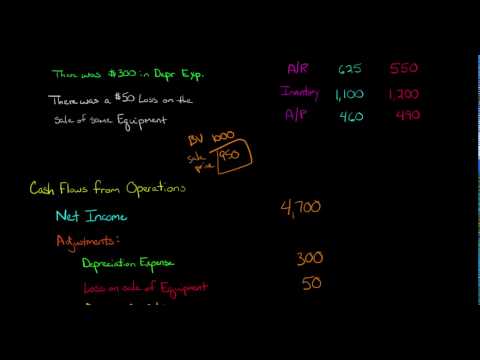 There was $300 in Depr Exp.
There was a $50 Loss on the
sale of some Equipment
A/R 625 550
Inventory 1,100 1,200
A/P 460 490
BV 1000
sale price 950
Cash Flows from Operations
Net Income 4,700
Adjustments:
Depreciation Expense 300
Loss on sale of Equipment 50